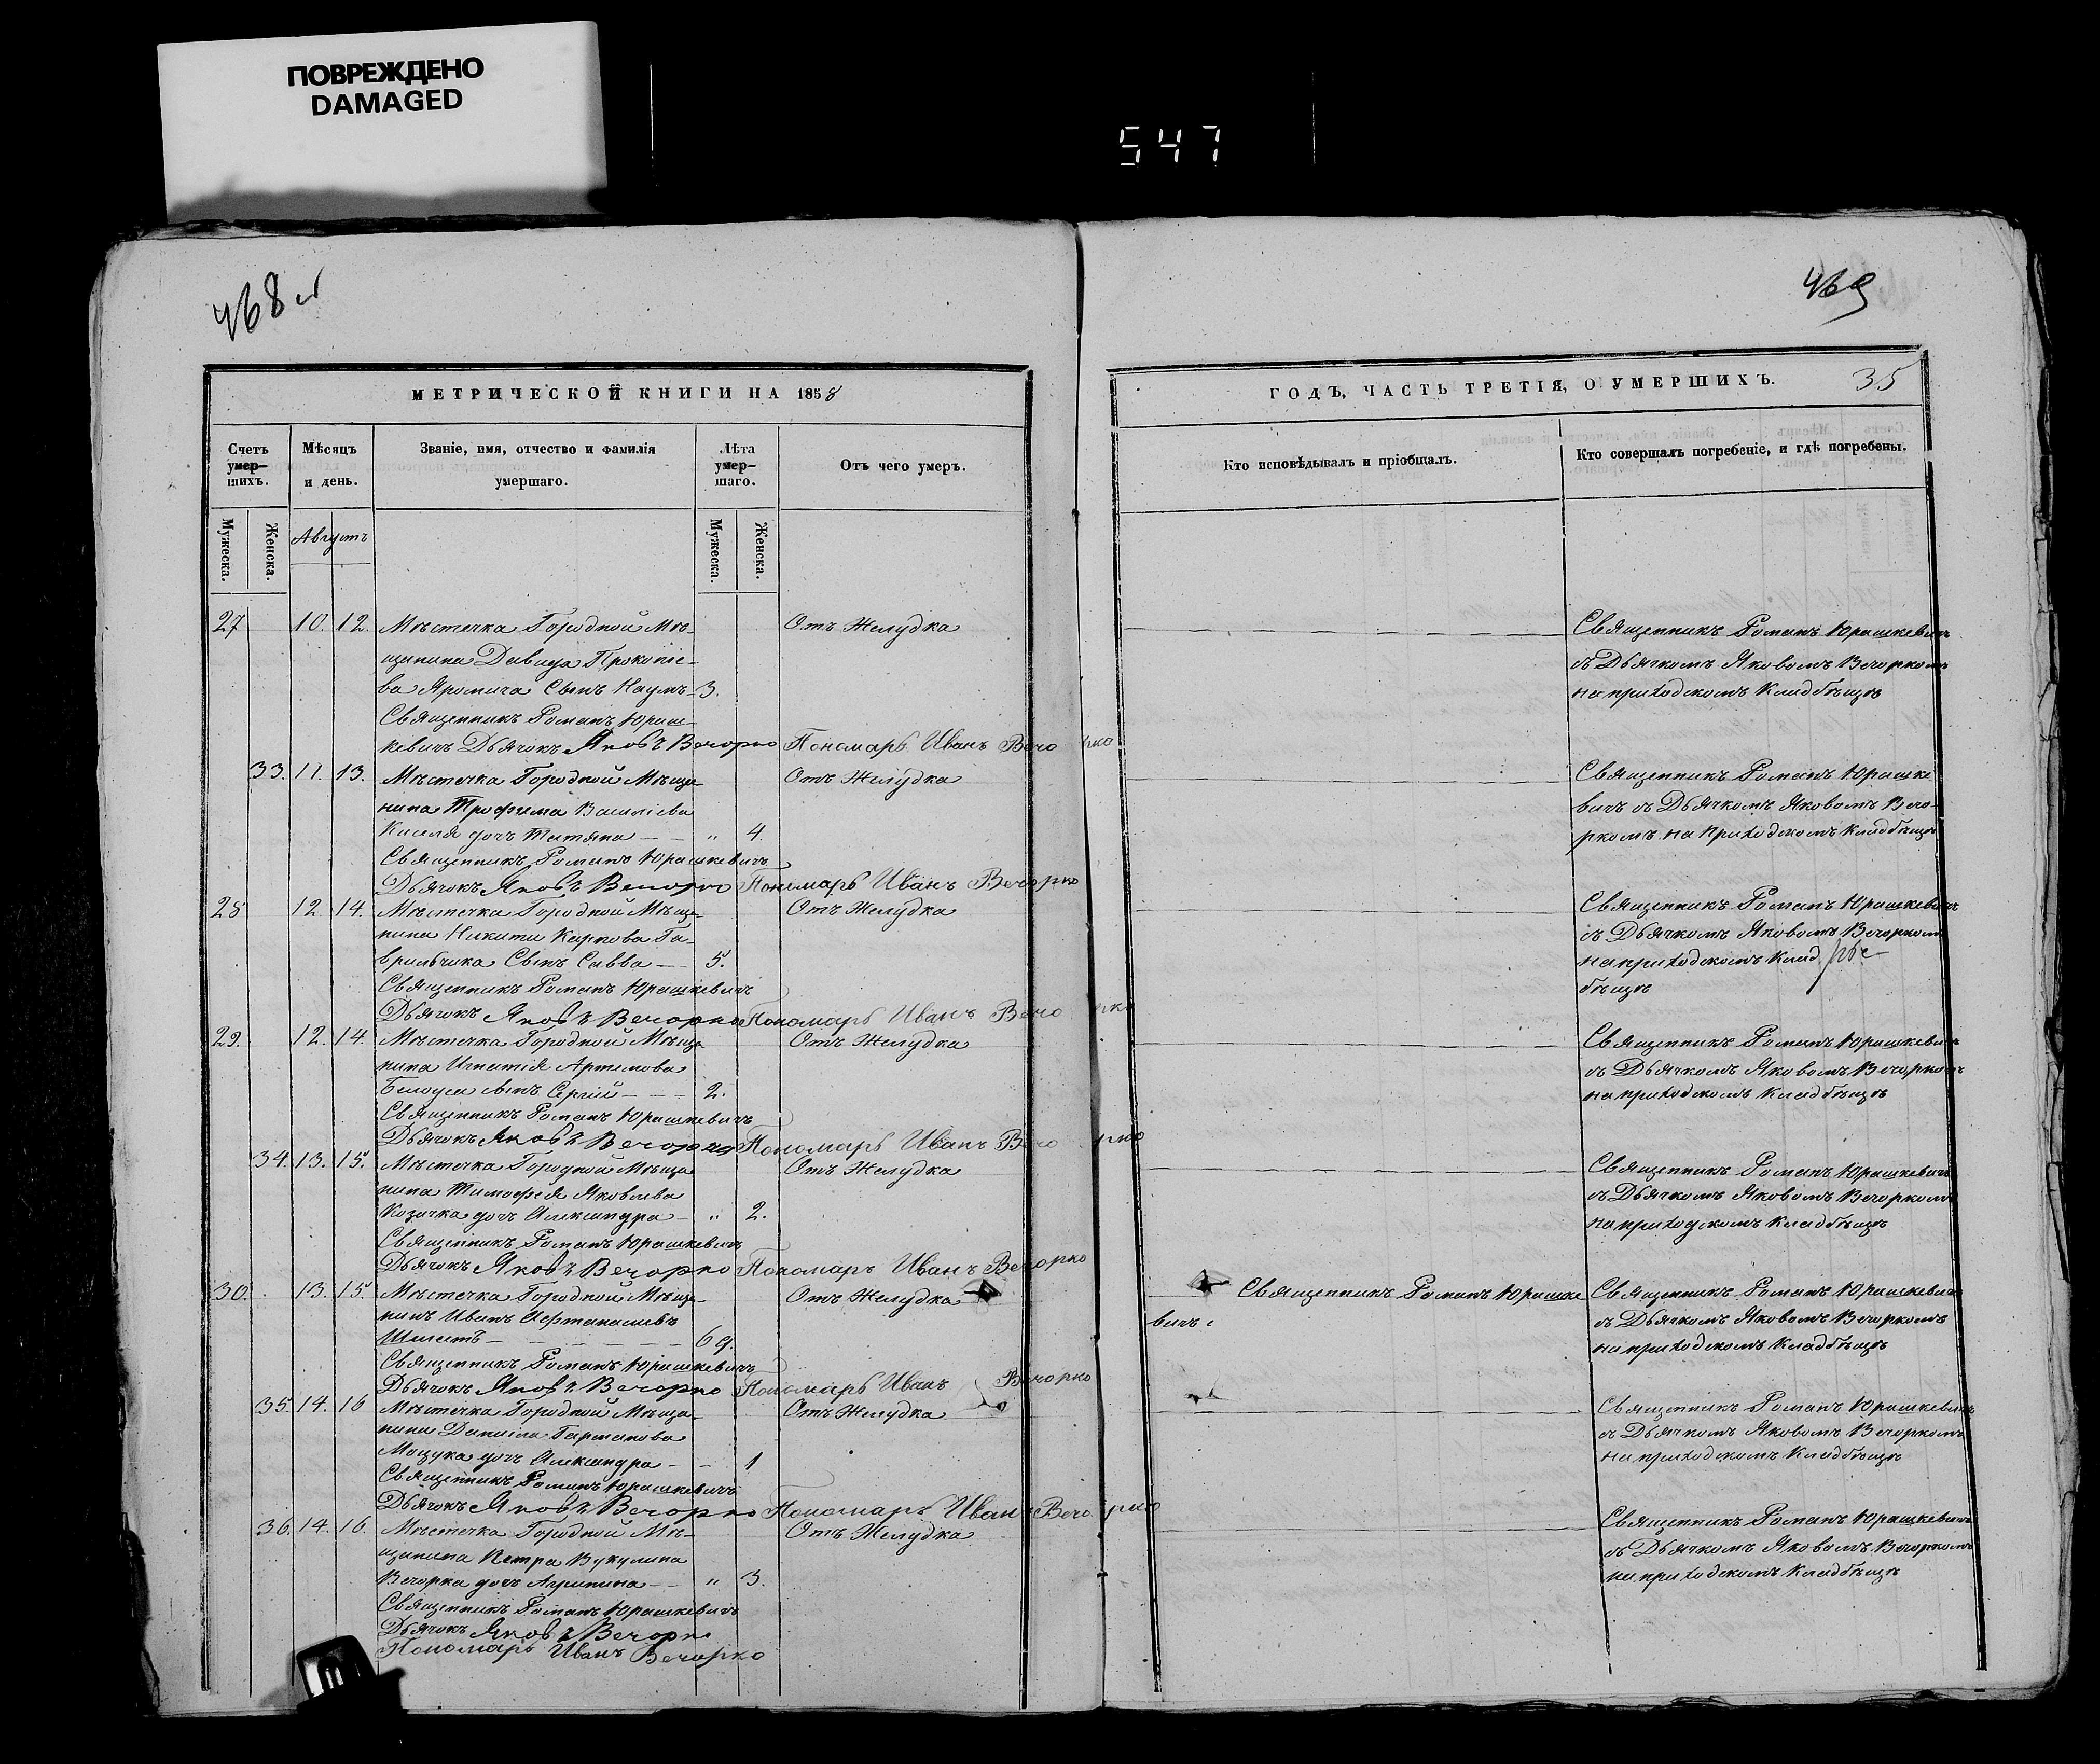 ПОВРЕЖДЕНО
DAMAGED
547
468 об
469
МЕТРИЧЕСКОЙ КНИГИ НА 1858
ГОДЪ, ЧАСТЬ ТРЕТІЯ, О УМЕРШИХЪ.
35
Счетъ умер-шихъ.
Мѣсяцъ и день.
Званіе, имя, отчество и фамилія умершаго.
Лѣта умер-шаго.
Отъ чего умеръ.
Кто исповѣдывалъ и пріобщалъ.
Кто совершалъ погребеніе, и гдѣ погребены.
Мужеска.
Женска.
Августъ
Мужеска.
Женска.
27 10. 12. Мѣстечка Городной Мѣ- Отъ Желудка
щанина Давида Прокопіе-
ва Яромича Сынъ Наумъ 3.
Священникъ Романъ Юраш-
кевичъ Дьячокъ Яковъ Вечорко Пономарь Иванъ Вечорко
Священникъ Романъ Юрашкевичъ
съ Дьячкомъ Яковомъ Вечоркомъ
на приходскомъ Кладбѣщѣ
33. 11. 13. Мѣстечка Городной Мѣща- Отъ Желудка
нина Трофима Василіева
Киселя дочь Татяна " 4.
Священникъ Романъ Юрашкевичъ
Дьячокъ Яковъ Вечорко Пономарь Иванъ Вечорко
Священникъ Романъ Юрашке
вичъ съ Дьячкомъ Яковомъ Вечо-
ркомъ на приходскомъ Кладбѣщѣ
28 12. 14. Мѣстечка Городной Мѣща- Отъ Желудка
нина Никити Карпова Га-
врильчика Сынъ Савва 5.
Священникъ Романъ Юрашкевичъ
Дьячокъ Яковъ Вечорко Пономарь Иванъ Вечорко
Священникъ Романъ Юрашкевичъ
съ Дьячкомъ Яковомъ Вечоркомъ
на приходскомъ Клад
бѣщѣ
29. 12. 14. Мѣстечка Городной Мѣща- Отъ Желудка
нина Игнатія Артемова
Белоуса сынъ Сергій 2.
Священникъ Романъ Юрашкевичъ
Дьячокъ Яковъ Вечорко Пономарь Иванъ Вечорко
Священникъ Романъ Юрашкевичъ
съ Дьячкомъ Яковомъ Вечоркомъ
на приходскомъ Кладбѣщѣ
34. 13. 15. Мѣстечка Городной Мѣща- Отъ Желудка
нина Тимофея Яковлева
Козачка дочь Александра " 2.
Священникъ Романъ Юрашкевичъ
Дьячокъ Яковъ Вечорко Пономарь Иванъ Вечорко
Священникъ Романъ Юрашкевичъ
съ Дьячкомъ Яковомъ Вечоркомъ
на приходскомъ Кладбѣщѣ
30. 13. 15. Мѣстечка Городной Мѣща- Отъ Желудка
нинъ Иванъ Афанасіевъ
69.
Священникъ Романъ Юрашкевичъ
Дьячокъ Яковъ Вечорко Пономарь Иванъ Вечорко
Священникъ Романъ Юрашке
вичъ
Священникъ Романъ Юрашкевичъ
съ Дьячкомъ Яковомъ Вечоркомъ
на приходскомъ Кладбѣщѣ
35. 14. 16 Мѣстечка Городной Мѣща- Отъ Желудка
нина Даніила Гарманова
Мощука дочь Александра 1
Священникъ Романъ Юрашкевичъ
Дьячокъ Яковъ Вечорко Пономарь Иванъ Вечорко
Священникъ Романъ Юрашкевичъ
съ Дьячкомъ Яковомъ Вечоркомъ
на приходскомъ Кладбѣщѣ
36. 14. 16. Мѣстечка Городной Мѣ- Отъ Желудка
щанина Петра Вукулина
Вечорка дочь " 3.
Священникъ Романъ Юрашкевичъ
Дьячокъ Яковъ Вечорко
Пономарь Иванъ Вечорко
Священникъ Романъ Юрашкевичъ
съ Дьячкомъ Яковомъ Вечоркомъ
на приходскомъ Кладбѣщѣ